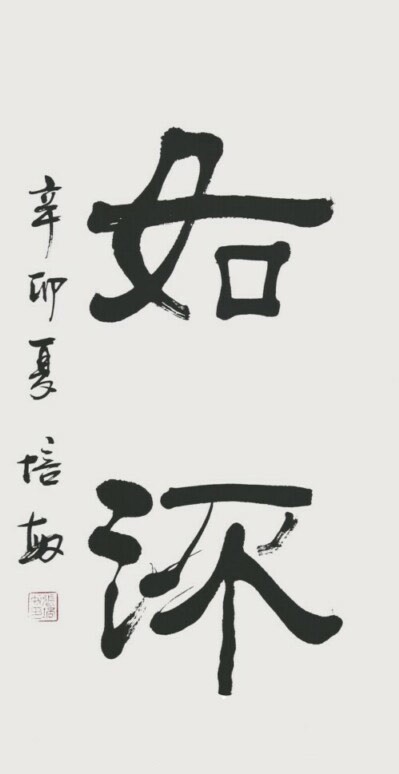 如沐
辛卯夏 培敏